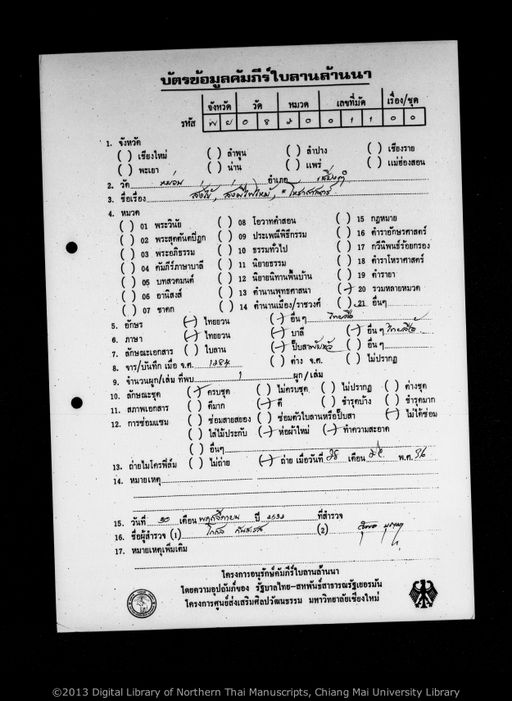 บัตรข้อมูลคัมภีร์ใบลานล้านนา
จังหวัด วัด หมวด เลขที่มัด เรื่อง/ชุด
รหัส พ ย 0 8 2 0 0 1 1 0 0
1. จังหวัด
( ) เชียงใหม่ ( ) ลำพูน ( ) ลำปาง ( ) เชียงราย
( ) พะเยา ( ) น่าน ( ) แพร่ ( ) แม่ฮ่องสอน
2. วัด อำเภอ
3. ชื่อเรื่อง
4. หมวด
( ) 01 พระวินัย ( ) 08 โอวาทคำสอน ( ) 15 กฎหมาย
( ) 02 พระสุตตันตปิฎก ( ) 09 ประเพณีพิธีกรรม ( ) 16 ตำราอักษรศาสตร์
( ) 03 พระอภิธรรม ( ) 10 ธรรมทั่วไป ( ) 17 กวีนิพนธ์ร้อยกรอง
( ) 04 คัมภีร์ภาษาบาลี ( ) 11 นิยายธรรม ( ) 18 ตำราโหราศาสตร์
( ) 05 บทสวดมนต์ ( ) 12 นิยายนิทานพื้นบ้าน ( ) 19 ตำรายา
( ) 06 อานิสงส์ ( ) 13 ตำนานพุทธศาสนา (/) 20 รวมหลายหมวด
( ) 07 ชาดก ( ) 14 ตำนานเมือง/ราชวงศ์ ( ) 21 อื่นๆ
5. อักษร (/) ไทยยวน (/) อื่นๆ ไทยลื้อ
6. ภาษา (/) ไทยยวน (/) บาลี (/) อื่นๆ ไทยลื้อ
7. ลักษณะเอกสาร ( ) ใบลาน (/) ปั๊บสา ( ) อื่นๆ
8. จาร/บันทึก เมื่อ จ.ศ. ( ) ต่าง จ.ศ. ( ) ไม่ปรากฏ
9. จำนวนผูก/เล่ม ที่พบ 1 ผูก/เล่ม
10. ลักษณะชุด (/) ครบชุด ( ) ไม่ครบชุด ( ) ไม่ปรากฏ ( ) ต่างชุด
11. สภาพเอกสาร ( ) ดีมาก (/) ดี ( ) ชำรุดบ้าง ( ) ชำรุดมาก
12. การซ่อมแซม ( ) ซ่อมสายสยอง ( ) ซ่อมตัวใบลานหรือปั๊บสา (/) ไม่ได้ซ่อม
( ) ใส่ไม้ประกับ (/) ห่อผ้าใหม่ (/) ทำความสะอาด
( ) อื่นๆ
13. ถ่ายไมโครฟิล์ม ( ) ไม่ถ่าย (/) ถ่าย เมื่อวันที่ 28 เดือน พ.ศ. 36
14. หมายเหตุ
15. วันที่ 30 เดือน พฤศจิกายน ปี ที่สำรวจ
16. ชื่อผู้สำรวจ (1) (2)
17. หมายเหตุเพิ่มเติม
โครงการอนุรักษ์คัมภีร์ใบลานล้านนา
โดยความอุปถัมภ์ของ รัฐบาลไทย-สหพันธ์สาธารณรัฐเยอรมัน
โครงการศูนย์ส่งเสริมศิลปวัฒนธรรม มหาวิทยาลัยเชียงใหม่
©2013 Digital Library of Northern Thai Manuscripts, Chiang Mai University Library